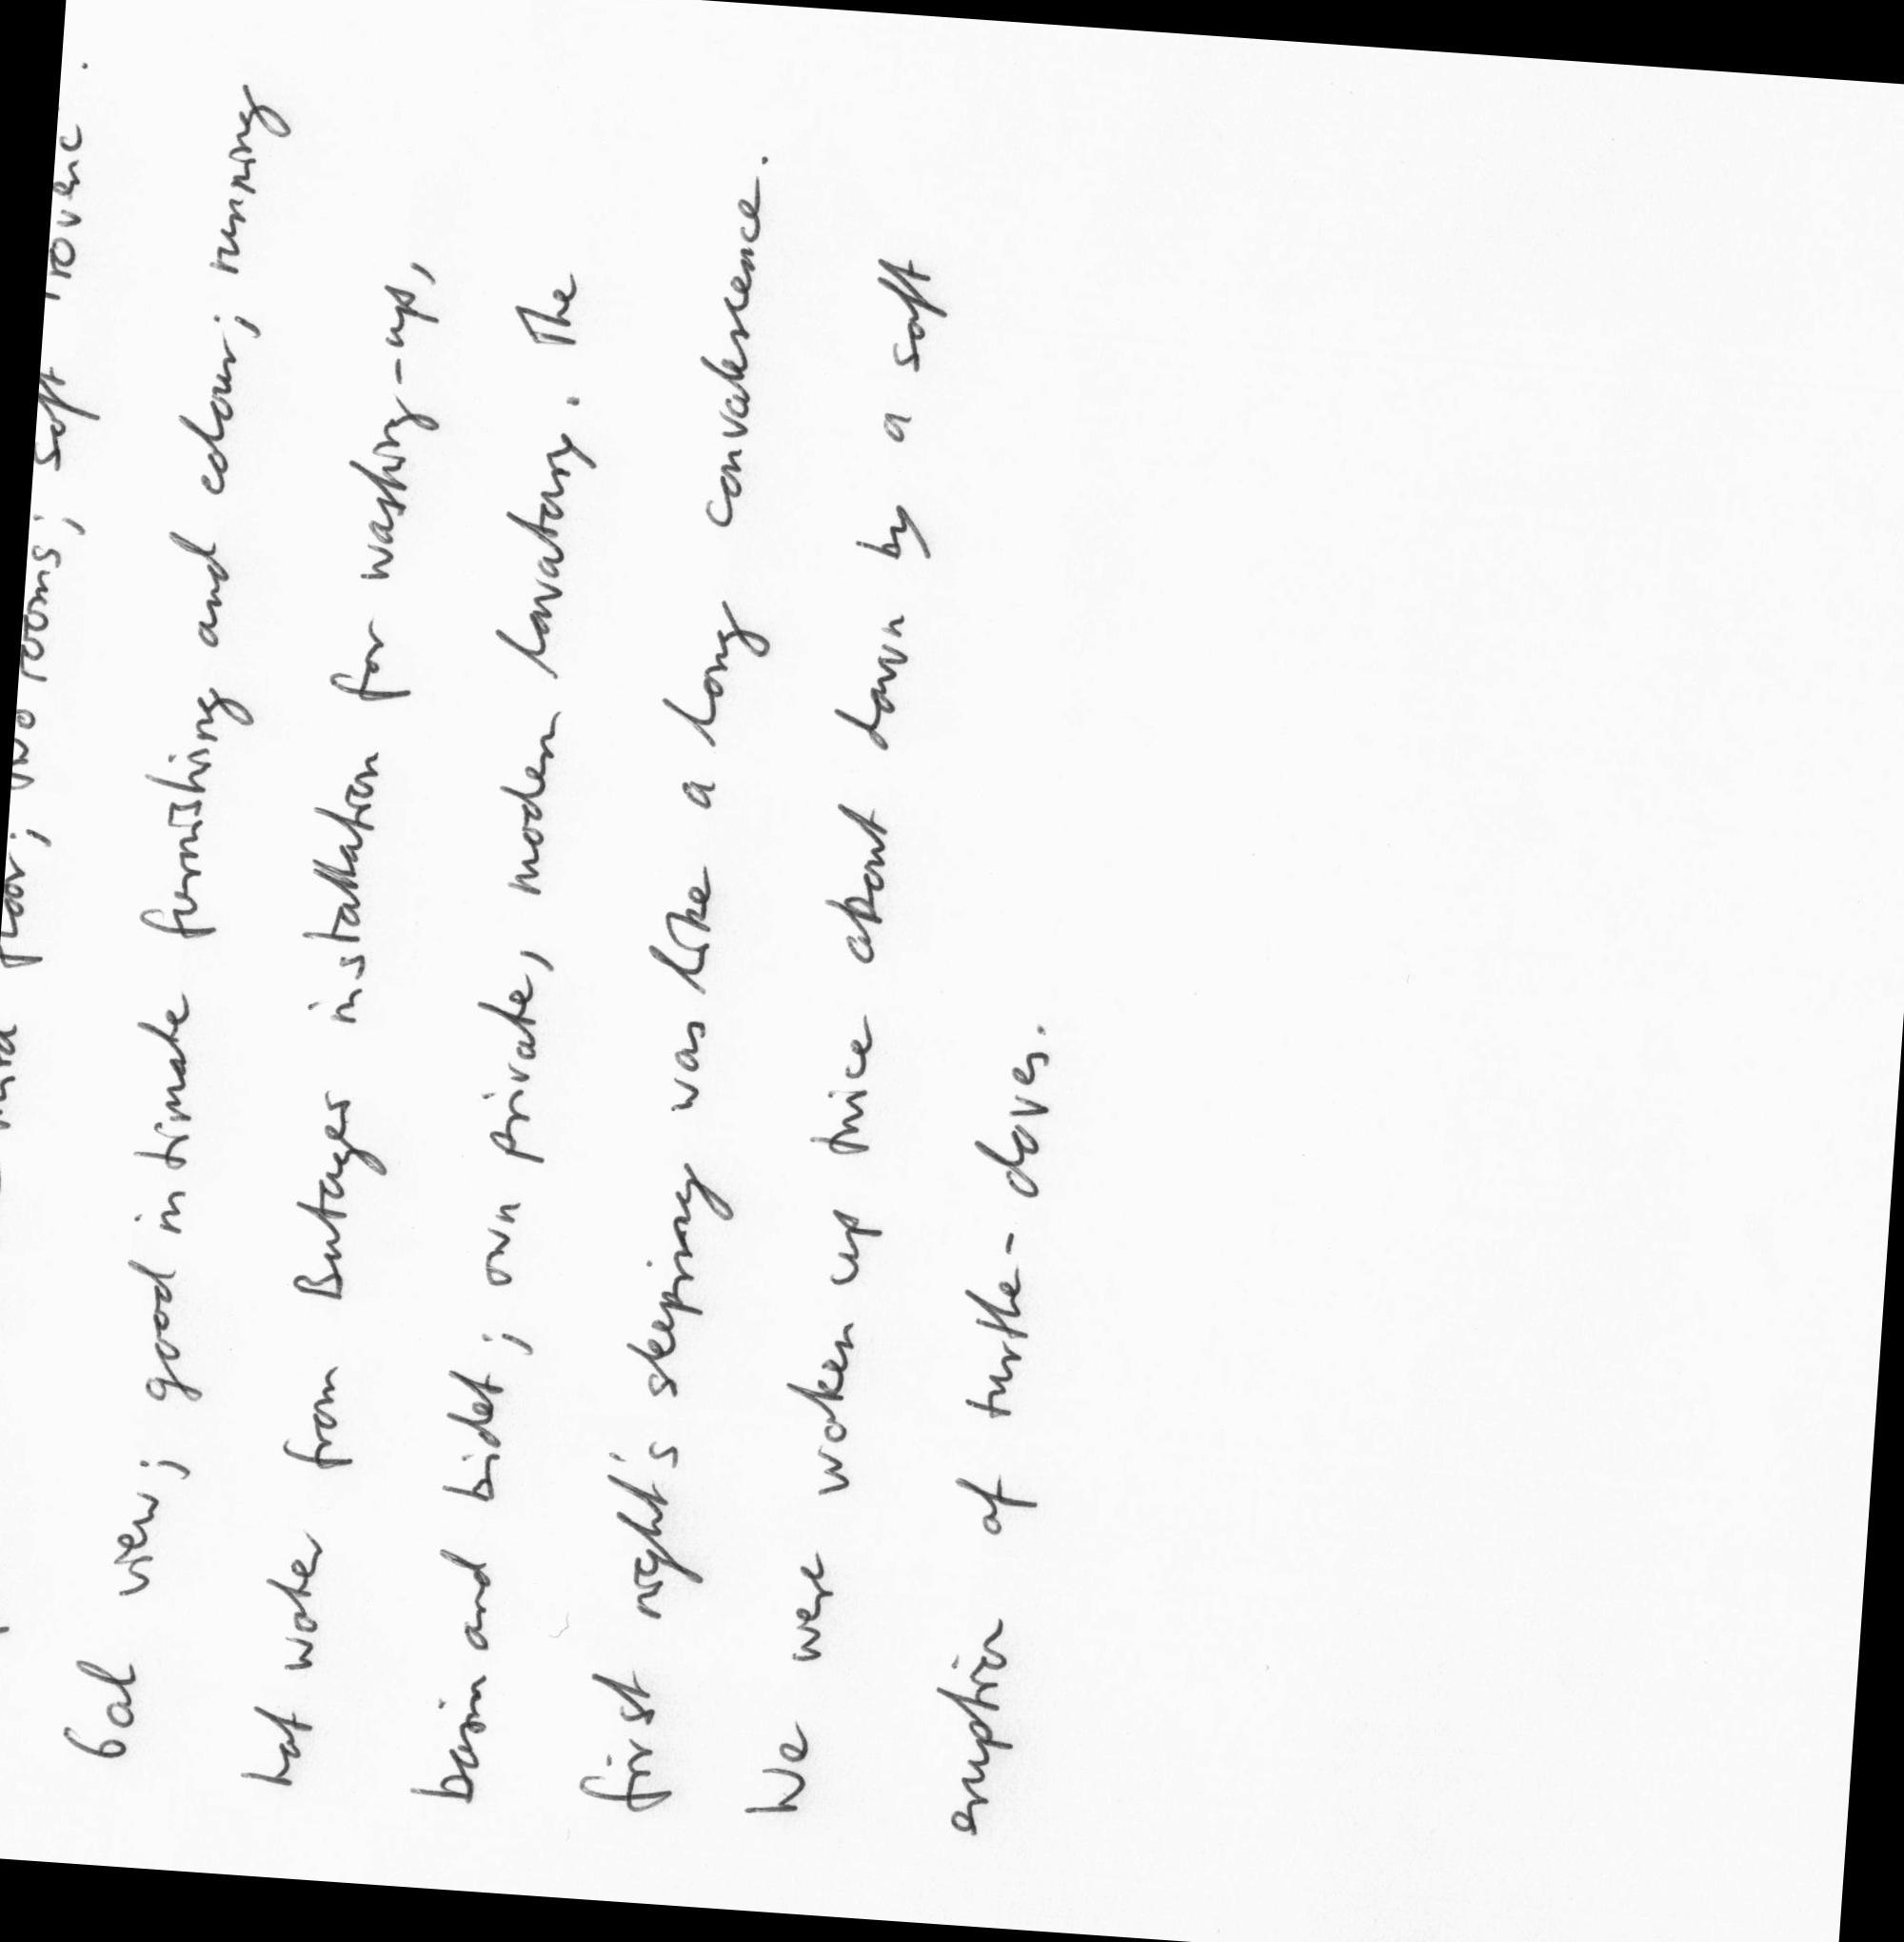 floor; two rooms; soft Provenc.
bal view; good intimate furnishing and colour; running
hot water from Butages installation for washing-up,
basin and bidet; own private, modern lavatory. The
first night's sleeping was like a long convalescence.
We were woken up twice about dawn by a soft
eruption of turtle-doves.